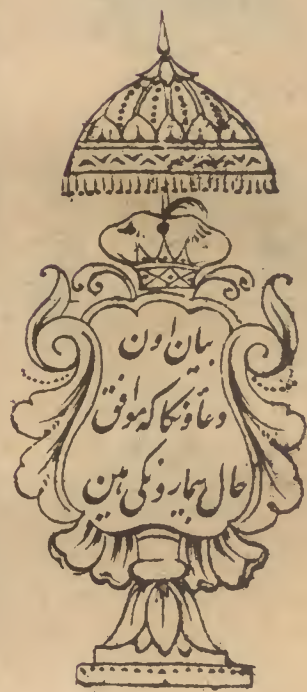 بیان اون
دعاؤنکا کہ موافق
حال بیمارونکی ہین